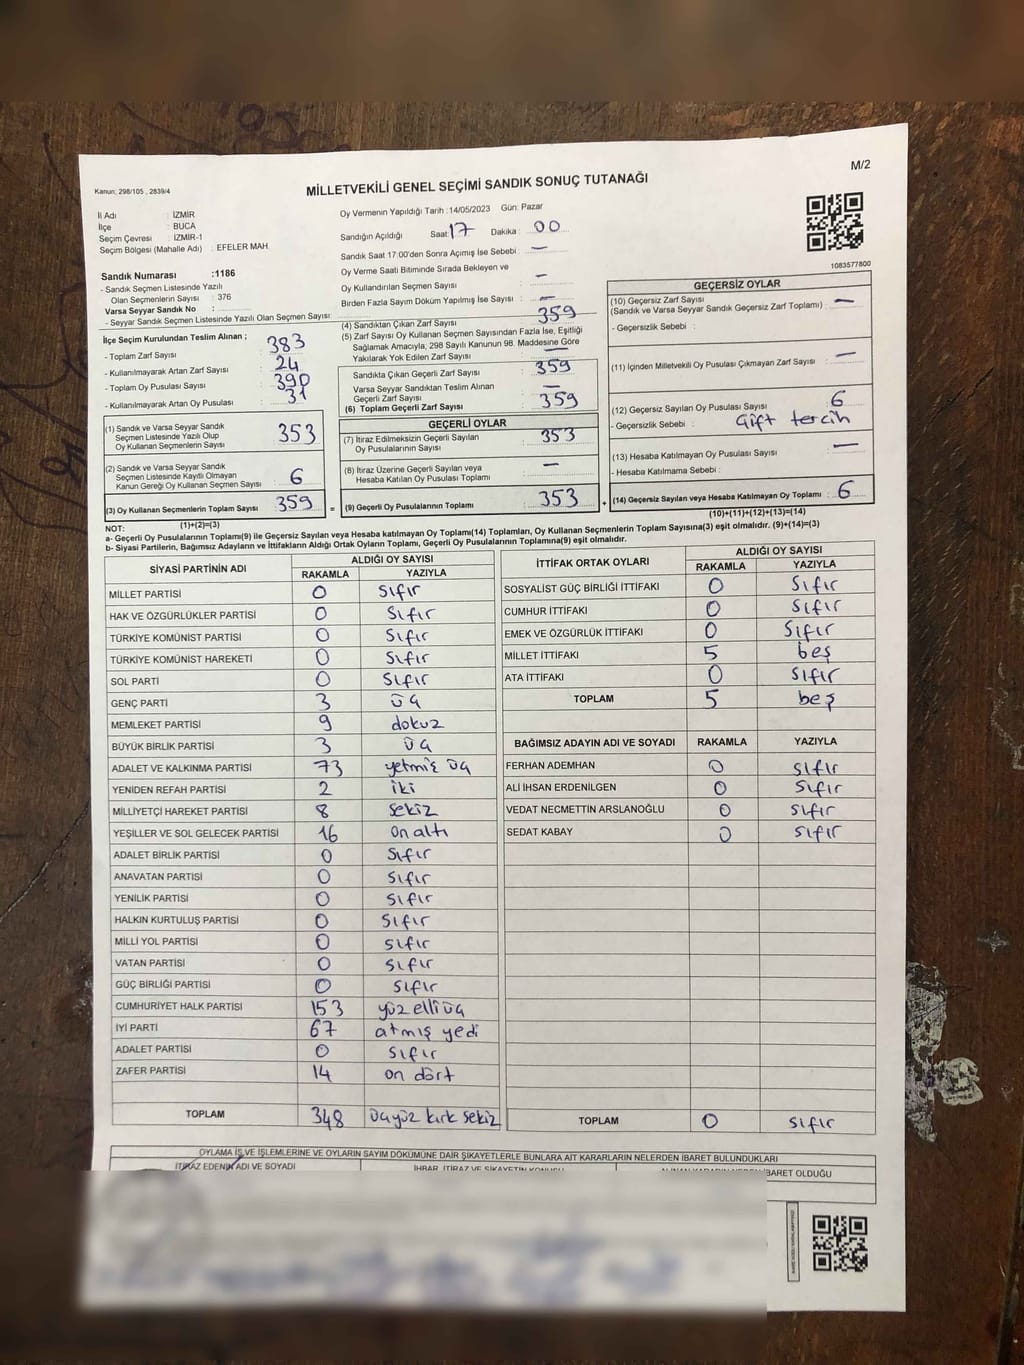 M/2
Kanun; 298/105 , 2839/4
MİLLETVEKİLİ GENEL SEÇİMİ SANDIK SONUÇ TUTANAĞI
İl Adı : İZMİR
İlçe : BUCA
Seçim Çevresi : İZMİR-1
Seçim Bölgesi (Mahalle Adı) : EFELER MAH.
Sandık Numarası :1186
- Sandık Seçmen Listesinde Yazılı
Olan Seçmenlerin Sayısı : 376
Varsa Seyyar Sandık No :
- Seyyar Sandık Seçmen Listesinde Yazılı Olan Seçmen Sayısı:
Oy Vermenin Yapıldığı Tarih :14/05/2023 Gün: Pazar
Sandığın Açıldığı Saat: 17 Dakika : 00
Sandık Saat 17.00'den Sonra Açımış İse Sebebi : —
Oy Verme Saati Bitiminde Sırada Bekleyen ve
Oy Kullandırılan Seçmen Sayısı : —
Birden Fazla Sayım Döküm Yapılmış İse Sayısı : —
1083577800
İlçe Seçim Kurulundan Teslim Alınan ;
- Toplam Zarf Sayısı : 383
- Kullanılmayarak Artan Zarf Sayısı : 24
- Toplam Oy Pusulası Sayısı : 390
- Kullanılmayarak Artan Oy Pusulası : 31
(1) Sandık ve Varsa Seyyar Sandık
Seçmen Listesinde Yazılı Olup
Oy Kullanan Seçmenlerin Sayısı : 353
(2) Sandık ve Varsa Seyyar Sandık
Seçmen Listesinde Kayıtlı Olmayan
Kanun Gereği Oy Kullanan Seçmen Sayısı : 6
(3) Oy Kullanan Seçmenlerin Toplam Sayısı : 359
(1)+(2)=(3)
(4) Sandıktan Çıkan Zarf Sayısı : 359
(5) Zarf Sayısı Oy Kullanan Seçmen Sayısından Fazla İse, Eşitliği
Sağlamak Amacıyla, 298 Sayılı Kanunun 98. Maddesine Göre
Yakılarak Yok Edilen Zarf Sayısı : —
Sandıkta Çıkan Geçerli Zarf Sayısı : 359
Varsa Seyyar Sandıktan Teslim Alınan
Geçerli Zarf Sayısı : —
(6) Toplam Geçerli Zarf Sayısı : 359
GEÇERLİ OYLAR
(7) İtiraz Edilmeksizin Geçerli Sayılan
Oy Pusulasının Sayısı : 353
(8) İtiraz Üzerine Geçerli Sayılan veya
Hesaba Katılan Oy Pusulası Toplamı : —
= (9) Geçerli Oy Pusulalarının Toplamı : 353 +
GEÇERSİZ OYLAR
(10) Geçersiz Zarf Sayısı
(Sandık ve Varsa Seyyar Sandık Geçersiz Zarf Toplamı) : —
- Geçersizlik Sebebi :
(11) İçinden Milletvekili Oy Pusulası Çıkmayan Zarf Sayısı : —
(12) Geçersiz Sayılan Oy Pusulası Sayısı : 6
- Geçersizlik Sebebi : Çift tercih
(13) Hesaba Katılmayan Oy Pusulası Sayısı : —
- Hesaba Katılmama Sebebi :
(14) Geçersiz Sayılan veya Hesaba Katılmayan Oy Toplamı : 6
(10)+(11)+(12)+(13)=(14)
NOT:
a- Geçerli Oy Pusulalarının Toplamı(9) ile Geçersiz Sayılan veya Hesaba katılmayan Oy Toplamı(14) Toplamları, Oy Kullanan Seçmenlerin Toplam Sayısına(3) eşit olmalıdır. (9)+(14)=(3)
b- Siyasi Partilerin, Bağımsız Adayların ve İttifakların Aldığı Ortak Oyların Toplamı, Geçerli Oy Pusulalarının Toplamına(9) eşit olmalıdır.
SİYASİ PARTİNİN ADI ALDIĞI OY SAYISI
RAKAMLA YAZIYLA
MİLLET PARTİSİ 0 sıfır
HAK VE ÖZGÜRLÜKLER PARTİSİ 0 sıfır
TÜRKİYE KOMÜNİST PARTİSİ 0 sıfır
TÜRKİYE KOMÜNİST HAREKETİ 0 sıfır
SOL PARTİ 0 sıfır
GENÇ PARTİ 3 üç
MEMLEKET PARTİSİ 9 dokuz
BÜYÜK BİRLİK PARTİSİ 3 üç
ADALET VE KALKINMA PARTİSİ 73 yetmiş üç
YENİDEN REFAH PARTİSİ 2 iki
MİLLİYETÇİ HAREKET PARTİSİ 8 sekiz
YEŞİLLER VE SOL GELECEK PARTİSİ 16 on altı
ADALET BİRLİK PARTİSİ 0 sıfır
ANAVATAN PARTİSİ 0 sıfır
YENİLİK PARTİSİ 0 sıfır
HALKIN KURTULUŞ PARTİSİ 0 sıfır
MİLLİ YOL PARTİSİ 0 sıfır
VATAN PARTİSİ 0 sıfır
GÜÇ BİRLİĞİ PARTİSİ 0 sıfır
CUMHURİYET HALK PARTİSİ 153 yüz elli üç
İYİ PARTİ 67 atmış yedi
ADALET PARTİSİ 0 sıfır
ZAFER PARTİSİ 14 on dört
TOPLAM 348 üçyüz kırk sekiz
İTTİFAK ORTAK OYLARI ALDIĞI OY SAYISI
RAKAMLA YAZIYLA
SOSYALİST GÜÇ BİRLİĞİ İTTİFAKI 0 sıfır
CUMHUR İTTİFAKI 0 sıfır
EMEK VE ÖZGÜRLÜK İTTİFAKI 0 sıfır
MİLLET İTTİFAKI 5 beş
ATA İTTİFAKI 0 sıfır
TOPLAM 5 beş
BAĞIMSIZ ADAYIN ADI VE SOYADI RAKAMLA YAZIYLA
FERHAN ADEMHAN 0 sıfır
ALİ İHSAN ERDENİLGEN 0 sıfır
VEDAT NECMETTİN ARSLANOĞLU 0 sıfır
SEDAT KABAY 0 sıfır
TOPLAM 0 sıfır
OYLAMA İŞ VE İŞLEMLERİNE VE OYLARIN SAYIM DÖKÜMÜNE DAİR ŞİKAYETLERLE BUNLARA AİT KARARLARIN NELERDEN İBARET BULUNDUKLARI
İTİRAZ EDENİN ADI VE SOYADI İHBAR, İTİRAZ VE ŞİKAYETİN KONUSU ALINAN KARARIN NEDEN İBARET OLDUĞU